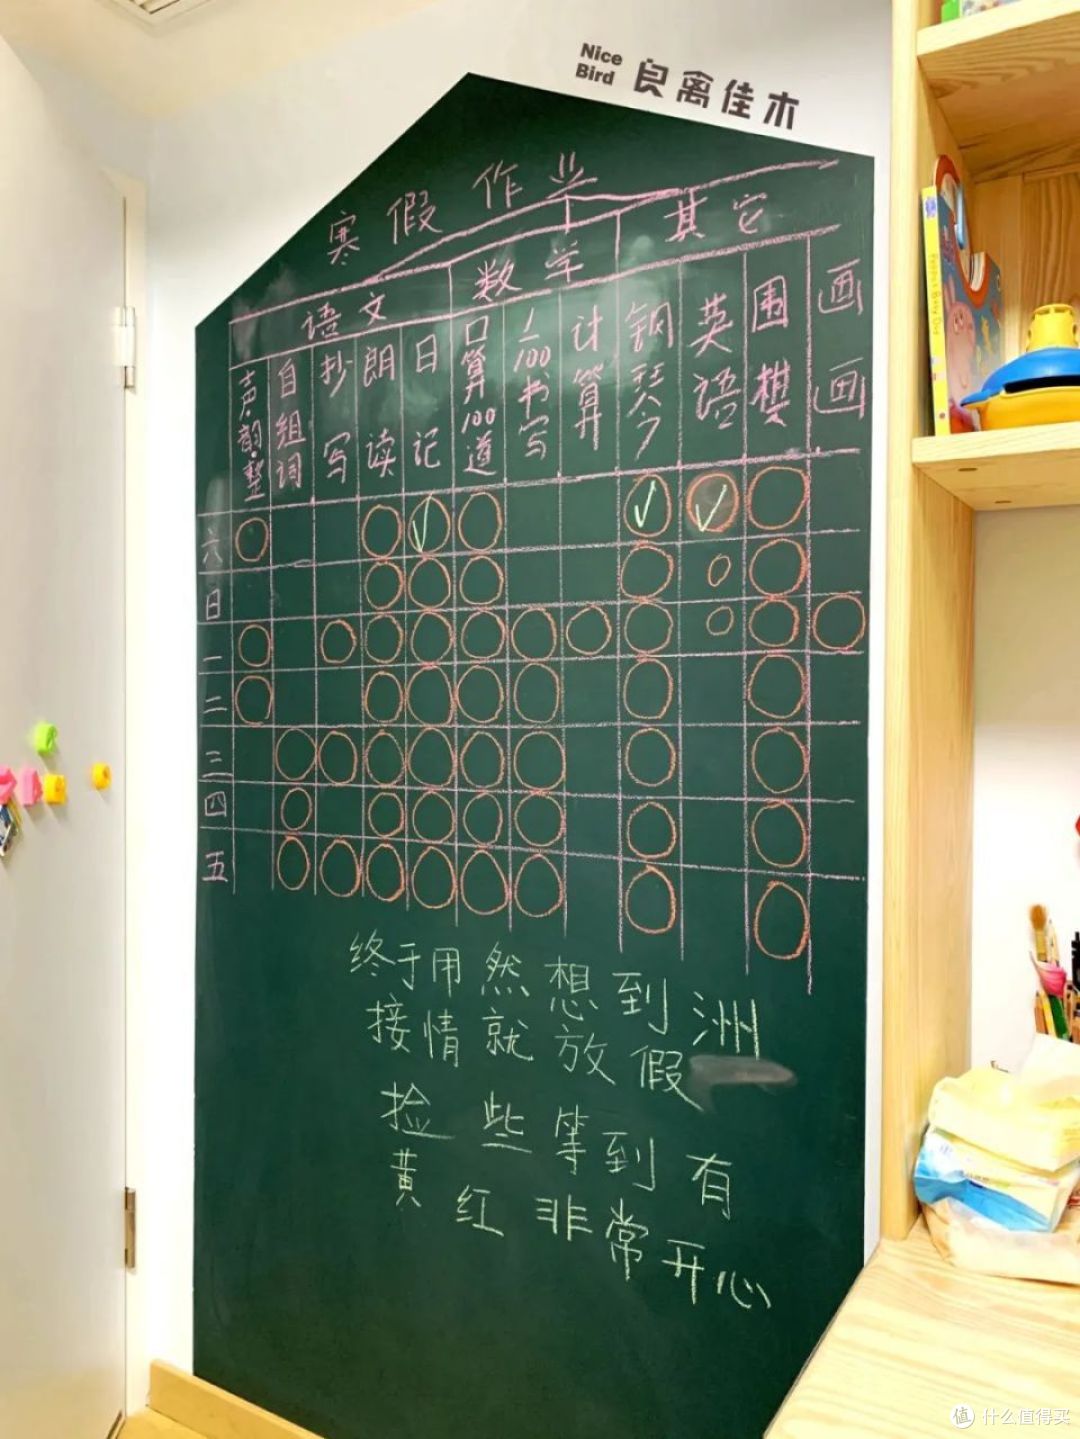 Nice
Bird
良禽佳木
寒假作业
语文 数学 其它
声韵整 自组词 抄写 朗读 日记 口算100道 1-100书写 计算 钢琴 英语 围棋 画画
六
日
一
二
三
四
五
终于用然想到洲
接情就放假
捡些等到有
黄红非常开心
值 什么值得买